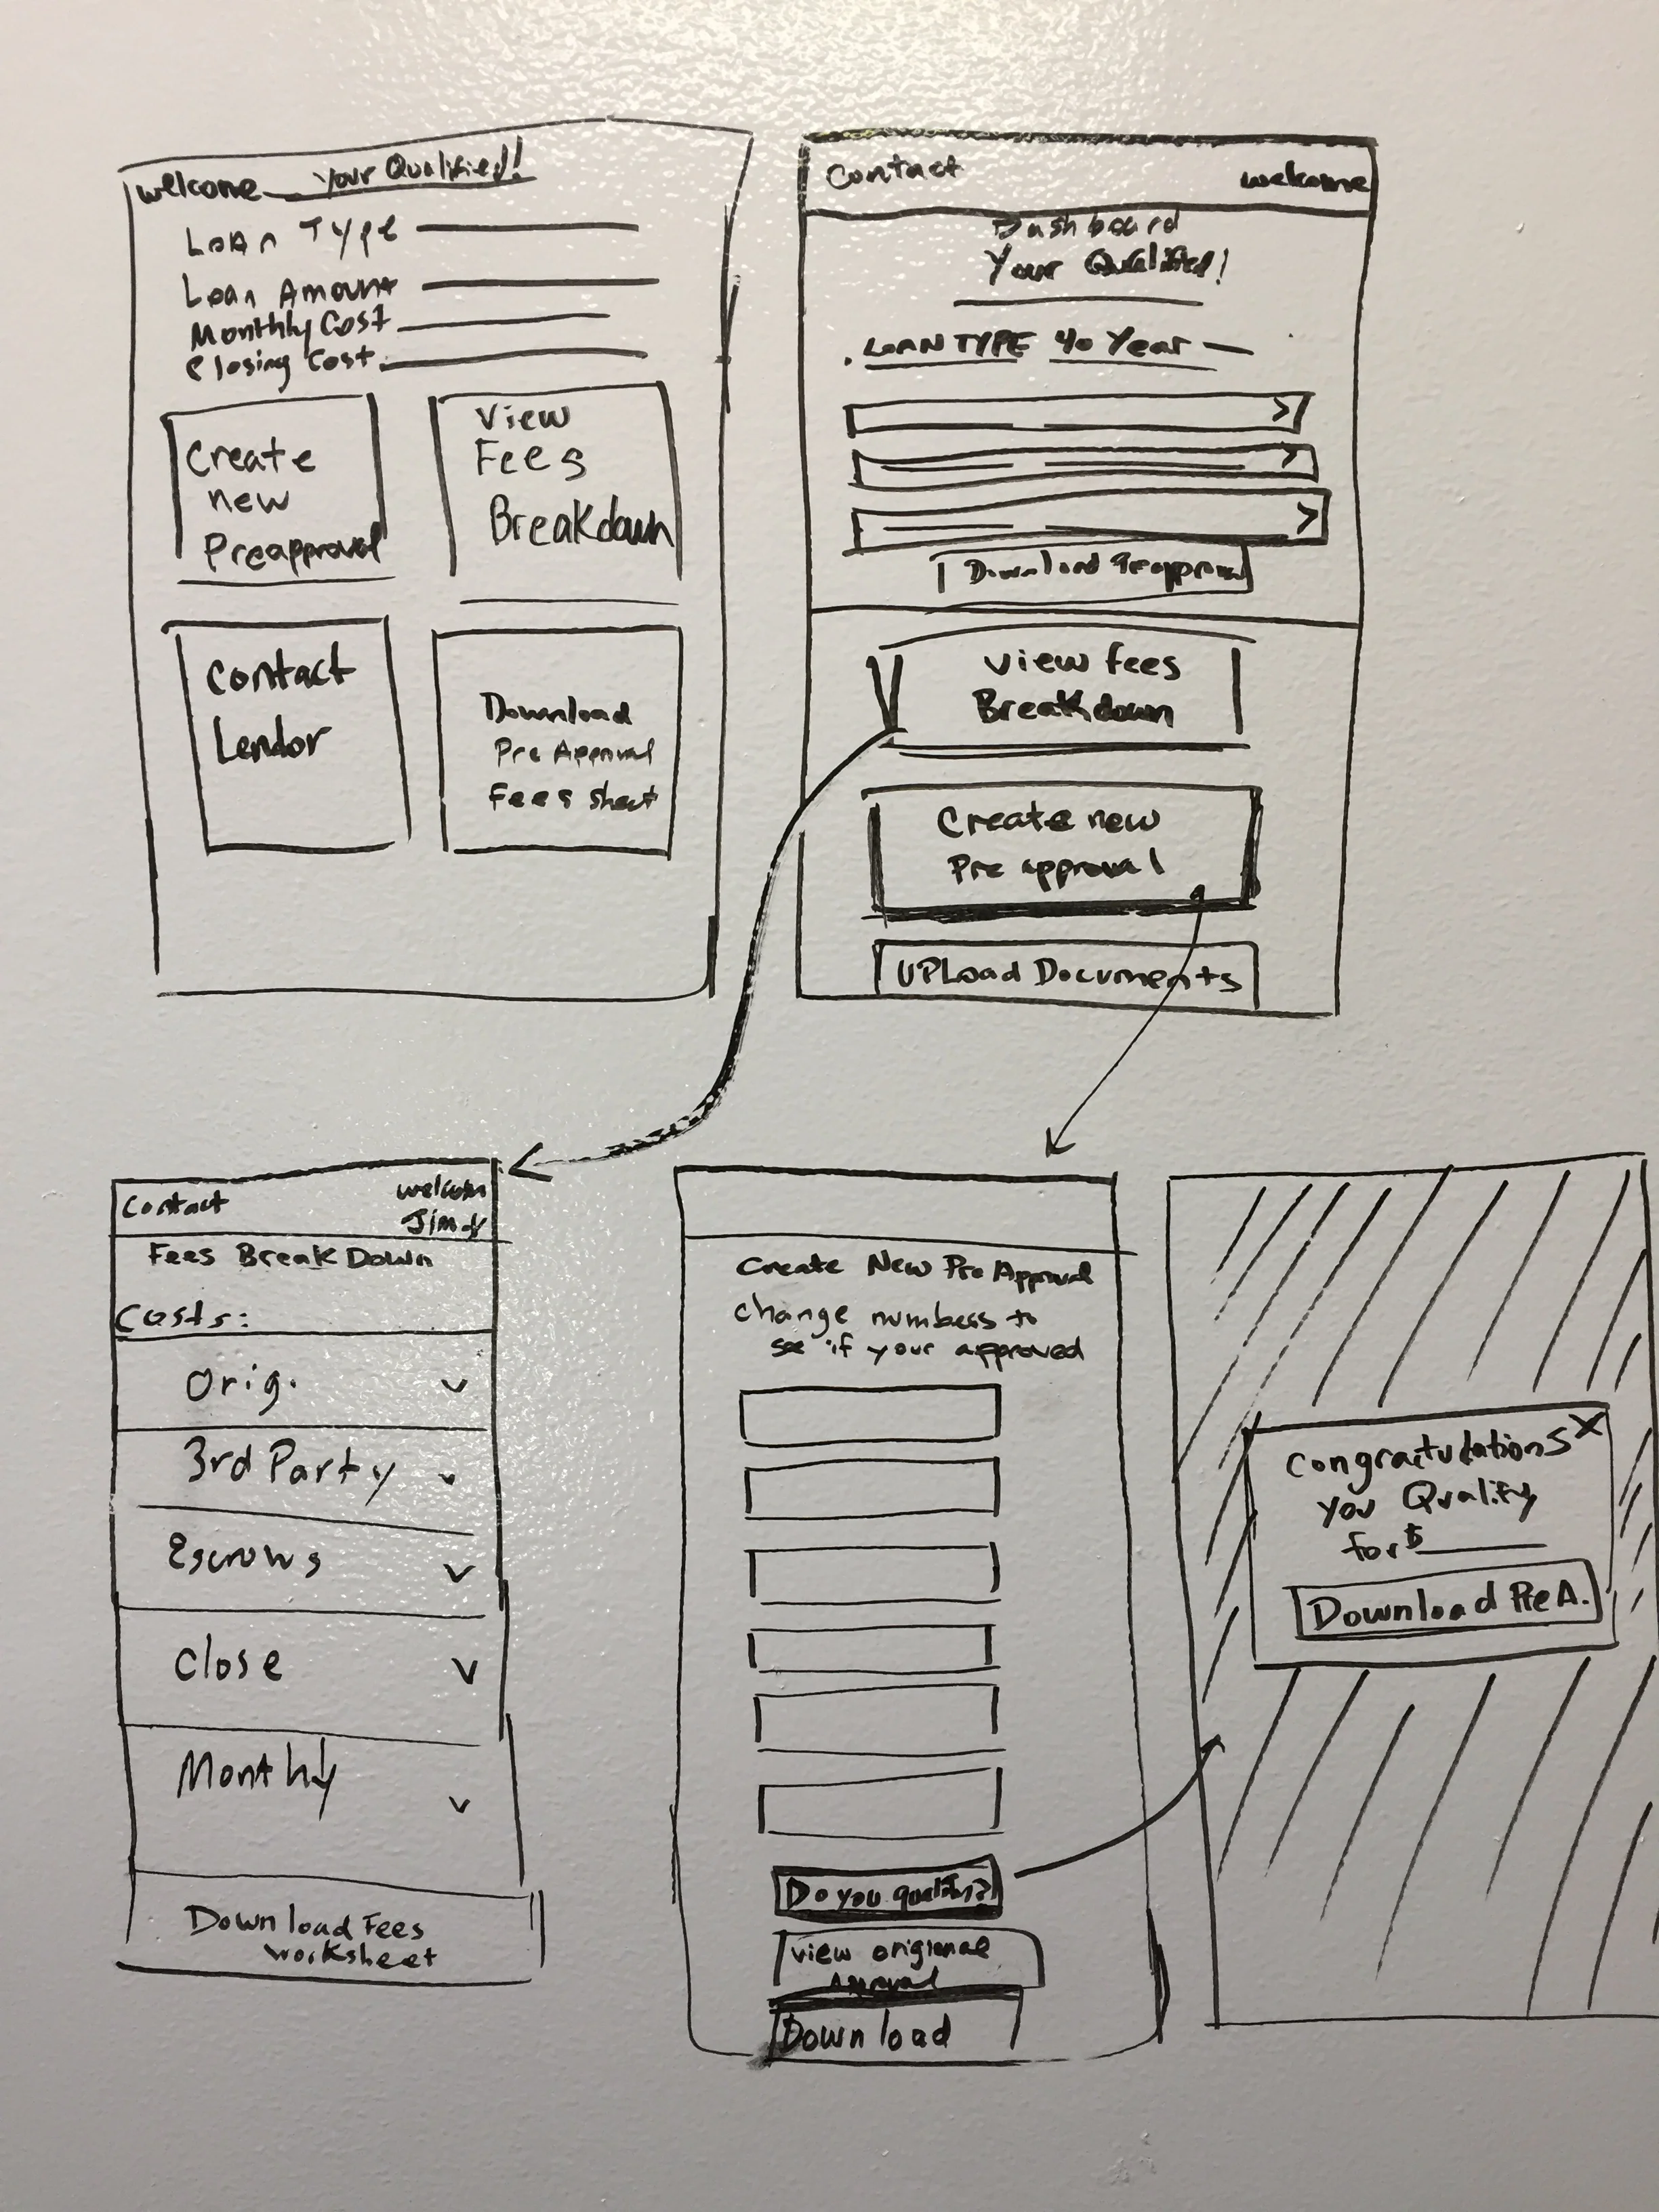 welcome Your Qualified!
Loan Type
Loan Amount
Monthly Cost
Closing Cost
Create
new
Preapproval
View
Fees
Breakdown
Contact
Lendor
Download
Pre Approval
Fees sheet
Contact welcome
Dashboard
Your Qualified!
LOAN TYPE 40 Year
>
>
>
Download Preapproval
View Fees
Breakdown
Create new
Pre approval
UPLoad Documents
Contact welcom
Jimdy
Fees BreakDown
Costs:
Orig.
3rd Party
Escrows
Close
Monthly
Download Fees
worksheet
Create New Pre Approval
change numbers to
see if your approved
Do you qualify?
View origional
Approval
Download
X
Congratulations
you Qualify
for $
Download Pre A.